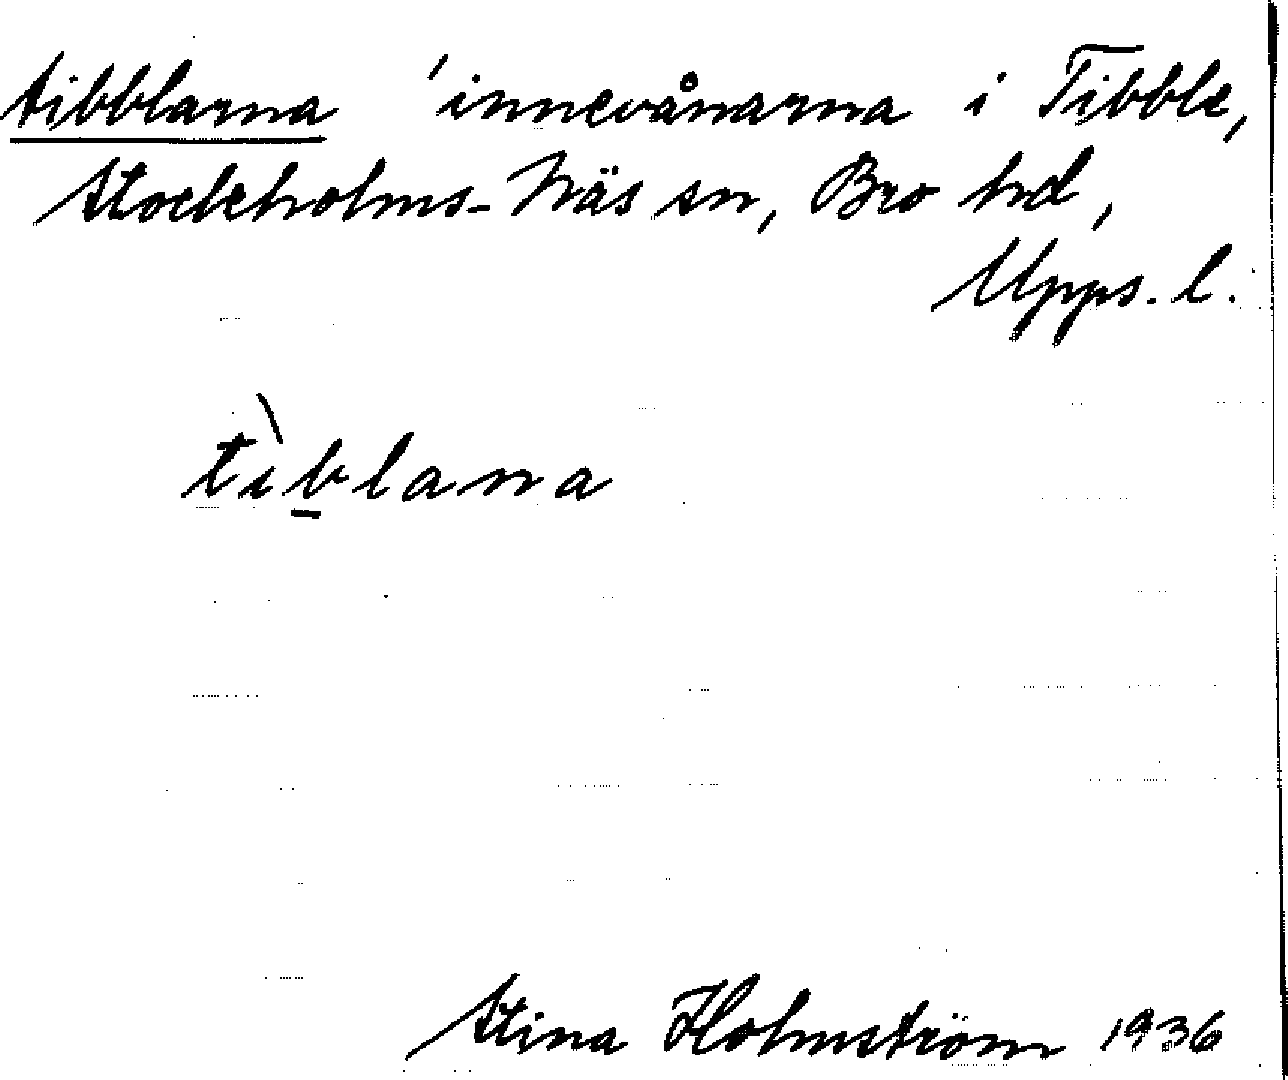 tibblarna 'innevånarna i Tibble,
Stockholms-Näs sn, Bro hd,
Upps. l.
tìb̲lana
Stina Holmström 1936